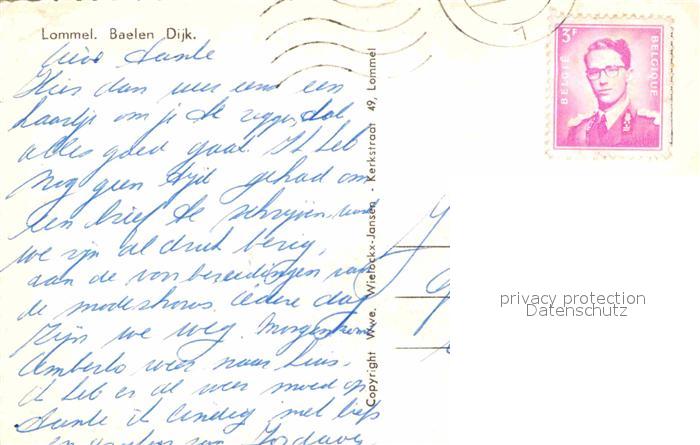 Lommel. Baelen Dijk.
Tante
Hier dan weer eens een
kaartje om je te zeggen dat
alles goed gaat. Ik heb
nog geen tijd gehad om
een brief te schrijven, want
we zijn al druk bezig,
aan de voorbereidingen van
de modeshows iedere dag
zijn we weg. Morgen komt
Umberto weer naar huis.
ik heb er al weer moed op
Tante ik eindig met liefs
en groeten van
Copyright Wwe. Wielockx-Jansen - Kerkstraat 49, Lommel
7
3F
BELGIË
BELGIQUE
privacy protection
Datenschutz